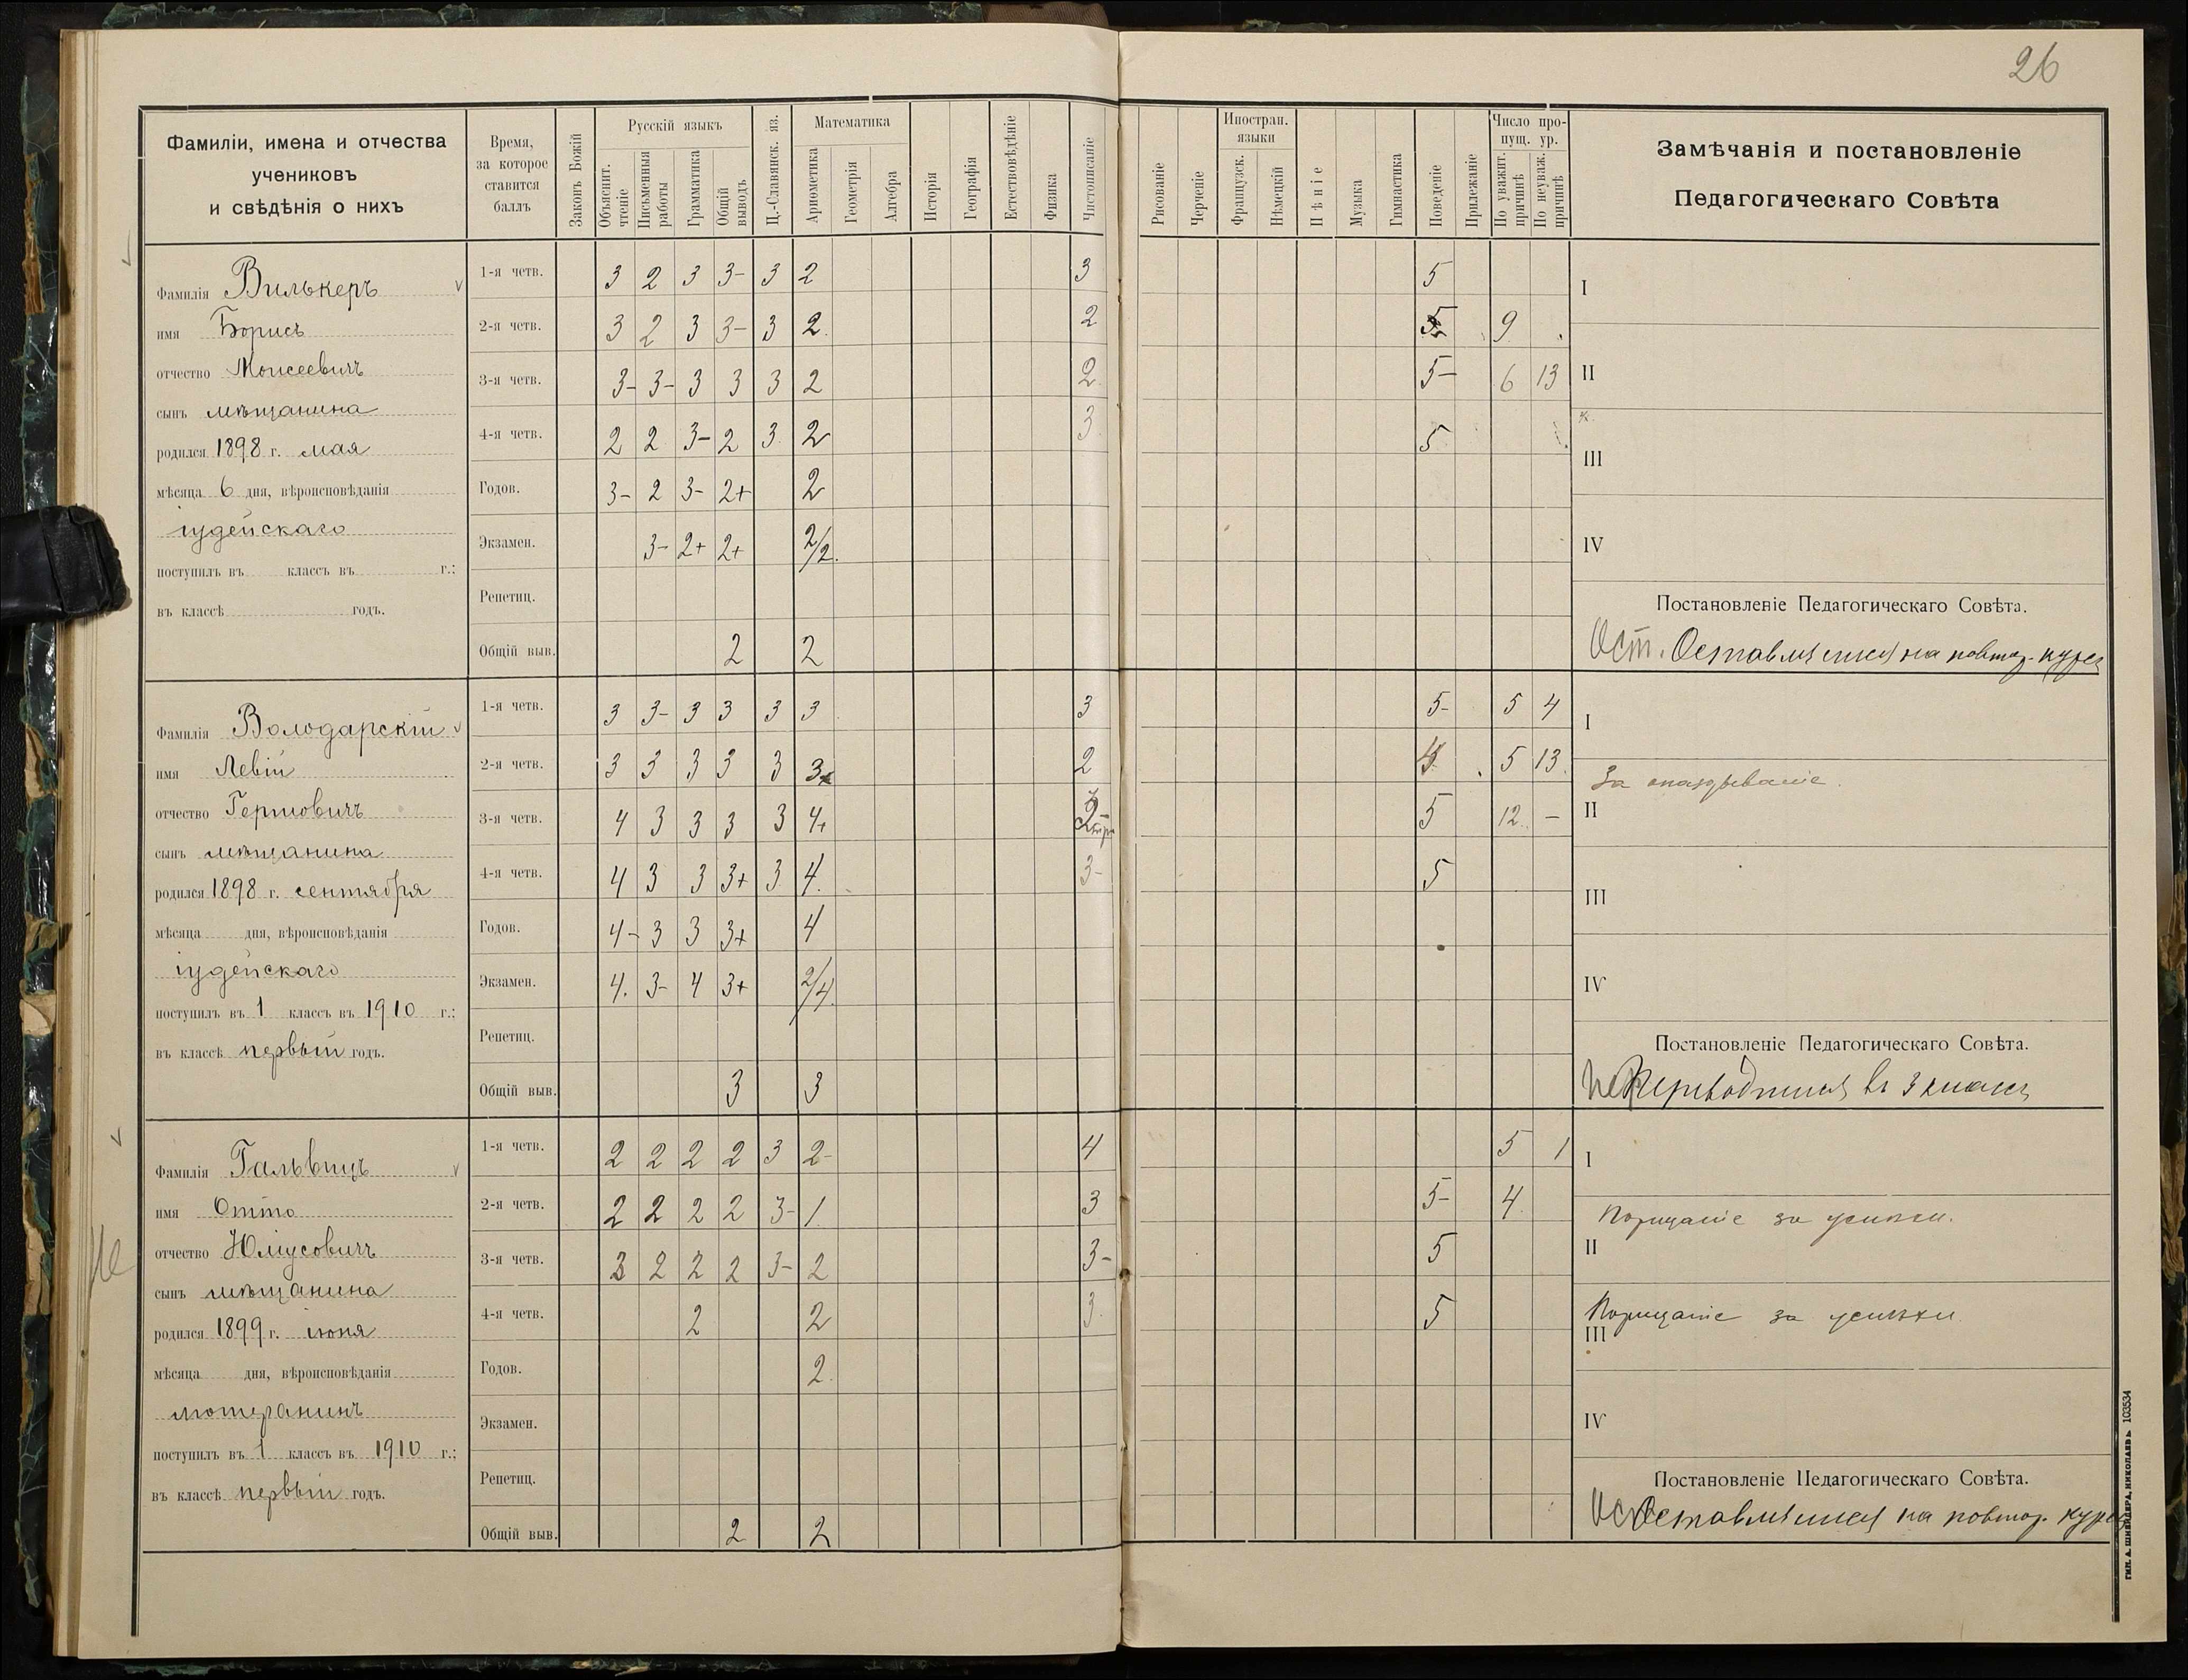 26
Фамиліи, имена и отчества
учениковъ
и свѣдѣнія о нихъ
Время,
за которое
ставится
баллъ
Законъ Божій
Русскій языкъ
Объяснит.
чтеніе
Письменныя
работы
Грамматика
Общій
выводъ
Ц.-Славянск. яз.
Математика
Ариѳметика
Геометрія
Алгебра
Исторія
Географія
Естествовѣдѣніе
Физика
Чистописаніе
Рисованіе
Черченіе
Иностран.
языки
Французск.
Нѣмецкій
Пѣніе
Музыка
Гимнастика
Поведеніе
Прилежаніе
Число про-
пущ. ур.
По уважит.
причинѣ
По неуваж.
причинѣ
Замѣчанія и постановленіе
Педагогическаго Совѣта
Фамилія Вилькеръ
имя Борисъ
отчество Моисеевичъ
сынъ мѣщанина
родился 1898 г. мая
мѣсяца 6 дня, вѣроисповѣданія
іудейскаго
поступилъ въ классъ въ г.:
въ классѣ годъ.
1-я четв. 3 2 3 3- 3 2 3 5
2-я четв. 3 2 3 3- 3 2 2 5 9
3-я четв. 3- 3- 3 3 3 2 2 5- 6 13
4-я четв. 2 2 3- 2 3 2 3 5
Годов. 3- 2 3- 2+ 2
Экзамен. 3- 2+ 2+ 2/2
Репетиц.
Общій выв. 2 2
I
II
III
IV
Постановленіе Педагогическаго Совѣта.
Ост. Оставляется на повтор. курсъ
Фамилія Володарскій
имя Левій
отчество Герцовичъ
сынъ мѣщанина
родился 1898 г. сентября
мѣсяца дня, вѣроисповѣданія
іудейскаго
поступилъ въ 1 классъ въ 1910 г.:
въ классѣ первый годъ.
1-я четв. 3 3- 3 3 3 3 3 5- 5 4
2-я четв. 3 3 3 3 3 3 2 5 13
3-я четв. 4 3 3 3 3 4+ 2 5 12 -
4-я четв. 4 3 3 3+ 3 4 3- 5
Годов. 4- 3 3 3+ 4
Экзамен. 4 3- 4 3+ 2/4
Репетиц.
Общій выв. 3 3
I
За опаздываніе.
II
III
IV
Постановленіе Педагогическаго Совѣта.
Переводится въ 3 классъ
Фамилія Гальвицъ
имя Отто
отчество Юліусовичъ
сынъ мѣщанина
родился 1899 г. іюня
мѣсяца дня, вѣроисповѣданія
лютеранинъ
поступилъ въ 1 классъ въ 1910 г.:
въ классѣ первый годъ.
1-я четв. 2 2 2 2 3 2- 4 5 1
2-я четв. 2 2 2 2 3- 1 3 5- 4
3-я четв. 3 2 2 2 3- 2 3- 5
4-я четв. 2 2 3 5
Годов. 2
Экзамен.
Репетиц.
Общій выв. 2 2
I
Порицаніе за успѣхи.
II
Порицаніе за успѣхи
III
IV
Постановленіе Педагогическаго Совѣта.
Оставляется на повтор. курсъ
ТИП. А. ШНЕЙДЕРА, НИКОЛАЕВЪ 103534